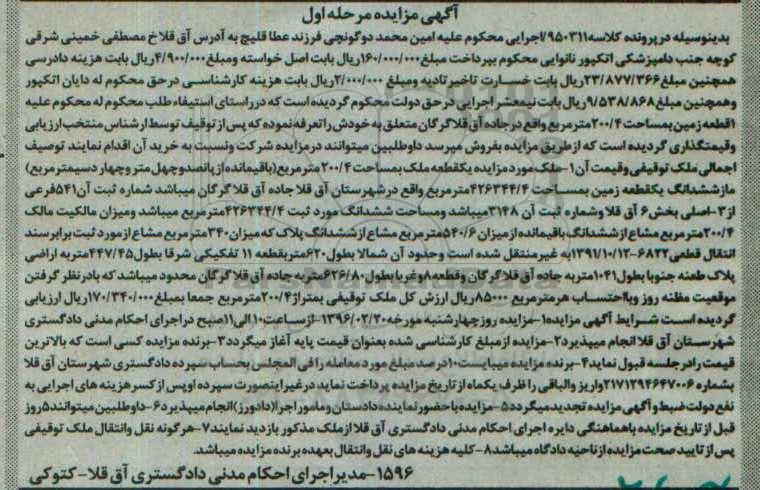 آگهی مزایده مرحله اول
بدینوسیله در پرونده کلاسه ۹۵۰۳۱۱/اجرایی محکوم علیه امین محمد دوگونچی فرزند عطا قلیچ به آدرس آق قلا خ مصطفی خمینی شرقی
کوچه جنب دامپزشکی اتکپور نانوایی محکوم بپرداخت مبلغ ۱۶۰/۰۰۰/۰۰۰ریال بابت اصل خواسته ومبلغ ۴/۹۰۰/۰۰۰ریال بابت هزینه دادرسی
همچنین مبلغ ۲۳/۸۷۷/۳۶۶ریال بابت خسارت تاخیر تادیه ومبلغ ۲/۰۰۰/۰۰۰ریال بابت هزینه کارشناسی در حق محکوم له دایان اتکپور
وهمچنین مبلغ ۹/۵۳۸/۸۶۸ریال بابت نیمعشر اجرایی در حق دولت محکوم گردیده است که در راستای استیفاء طلب محکوم له محکوم علیه
۱قطعه زمین بمساحت ۲۰۰/۴مترمربع واقع در جاده آق قلا گرگان متعلق به خودش را تعرفه نموده که پس از توقیف توسط ارشناس منتخب ارزیابی
وقیمتگذاری گردیده است که از طریق مزایده بفروش میرسد داوطلبین میتوانند در مزایده شرکت ونسبت به خرید آن اقدام نمایند توصیف
اجمالی ملک توقیفی وقیمت آن ۱-ملک مورد مزایده یکقطعه ملک بمساحت ۲۰۰/۴مترمربع(باقیمانده از پانصدوچهل متر وچهار دسیمتر مربع)
ماز ششدانگ یکقطعه زمین بمساحت ۴۲۶۳۴۴/۴مترمربع واقع در شهرستان آق قلا جاده آق قلا گرگان میباشد شماره ثبت آن ۵۴۱فرعی
از ۳-اصلی بخش ۶ آق قلا وشماره ثبت آن ۳۱۴۸میباشد ومساحت ششدانگ مورد ثبت ۴۲۶۳۴۴/۴مترمربع میباشد ومیزان مالکیت مالک
۲۰۰/۴مترمربع مشاع از ششدانگ باقیمانده از میزان ۵۴۰/۶مترمربع مشاع از ششدانگ پلاک که میزان ۳۴۰مترمربع مشاع از مورد ثبت برابر سند
انتقال قطعی ۶۸۲۲-۱۳۹۱/۱۰/۱۲به غیر منتقل شده است وحدود آن شمالا بطول ۶۲۰متر بقطعه ۱۱ تفکیکی شرقا بطول ۴۴۷/۴۵متربه اراضی
پلاک طعنه جنوبا بطول ۱۰۴۱متر به جاده آق قلا گرگان وقطعه ۸وغربا بطول ۶۲۶/۸۰متر به جاده آق قلا گرگان محدود میباشد که بادر نظر گرفتن
موقعیت مظنه روز وبااحتساب هر مترمربع ۸۵۰۰۰۰ریال ارزش کل ملک توقیفی بمتراژ ۲۰۰/۴مترمربع جمعا بمبلغ ۱۷۰/۳۴۰/۰۰۰ریال ارزیابی
گردیده است شرایط آگهی مزایده ۱-مزایده روز چهارشنبه مورخه ۱۳۹۶/۰۲/۲۰-از ساعت ۱۰الی ۱۱صبح در اجرای احکام مدنی دادگستری
شهرستان آق قلا انجام میپذیرد ۲-مزایده از مبلغ کارشناسی شده بعنوان قیمت پایه آغاز میگردد ۳-برنده مزایده کسی است که بالاترین
قیمت را در جلسه قبول نماید ۴-برنده مزایده میبایست ۱۰درصد مبلغ مورد معامله را فی المجلس بحساب سپرده دادگستری شهرستان آق قلا
بشماره ۲۱۷۱۲۹۴۶۴۷۰۰۶واریز والباقی را ظرف یکماه از تاریخ مزایده پرداخت نماید در غیر اینصورت سپرده اوپس از کسر هزینه های اجرایی به
نفع دولت ضبط و آگهی مزایده تجدید میگردد ۵-مزایده با حضور نماینده دادستان و مامور اجرا(دادورز)انجام میپذیرد ۶-داوطلبین میتوانند ۵روز
قبل از تاریخ مزایده باهماهنگی دایره اجرای احکام مدنی دادگستری آق قلا از ملک مذکور بازدید نمایند ۷-هرگونه نقل وانتقال ملک توقیفی
پس از تایید صحت مزایده از ناحیه دادگاه میباشد ۸-کلیه هزینه های نقل وانتقال بعهده برنده مزایده میباشد.
۱۵۹۶-مدیر اجرای احکام مدنی دادگستری آق قلا-کتوکی